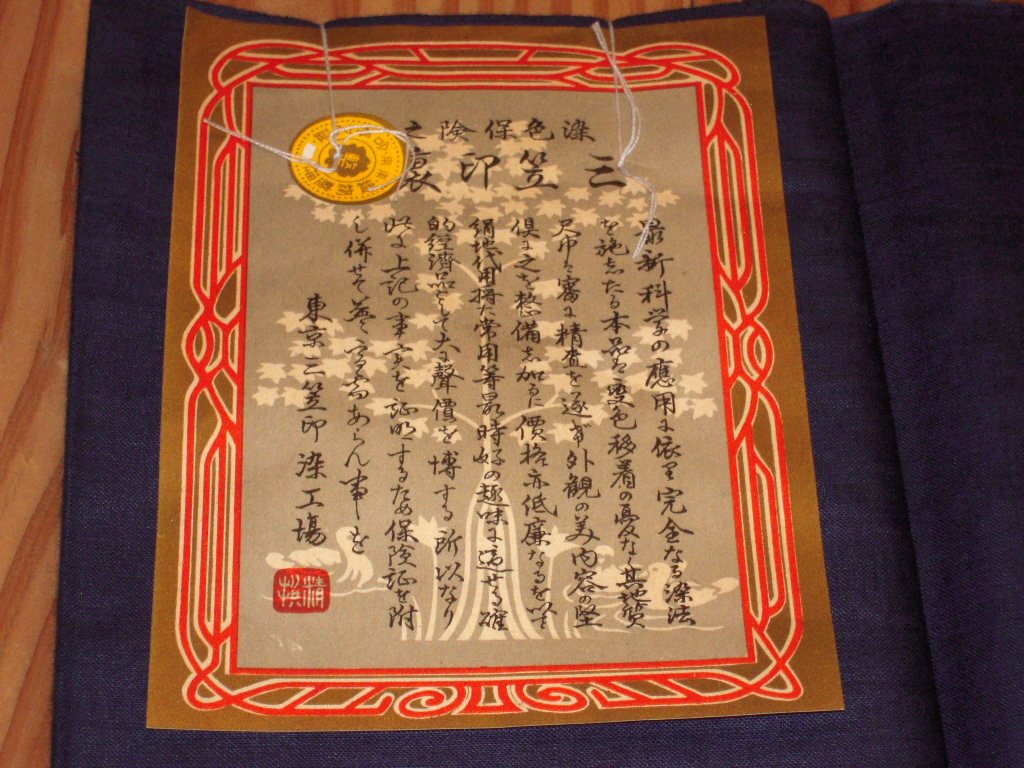 染色保険之
三笠印裏
最新科学の應用に依り完全なる染法
を施したる本品は変色移着の憂なく其地質
尺巾を密に精査を遂げ外観の美内容の堅
倶に之を整備し加ふるに價格亦低廉なるを以て
絹地代用将た常用等最時好の趣味に適せる確
的経済品として大に聲價を博する所以なり
此に上記の事実を証明するため保険証を附
し併せて益々高あらん事を
東京三笠印染工場
精撰